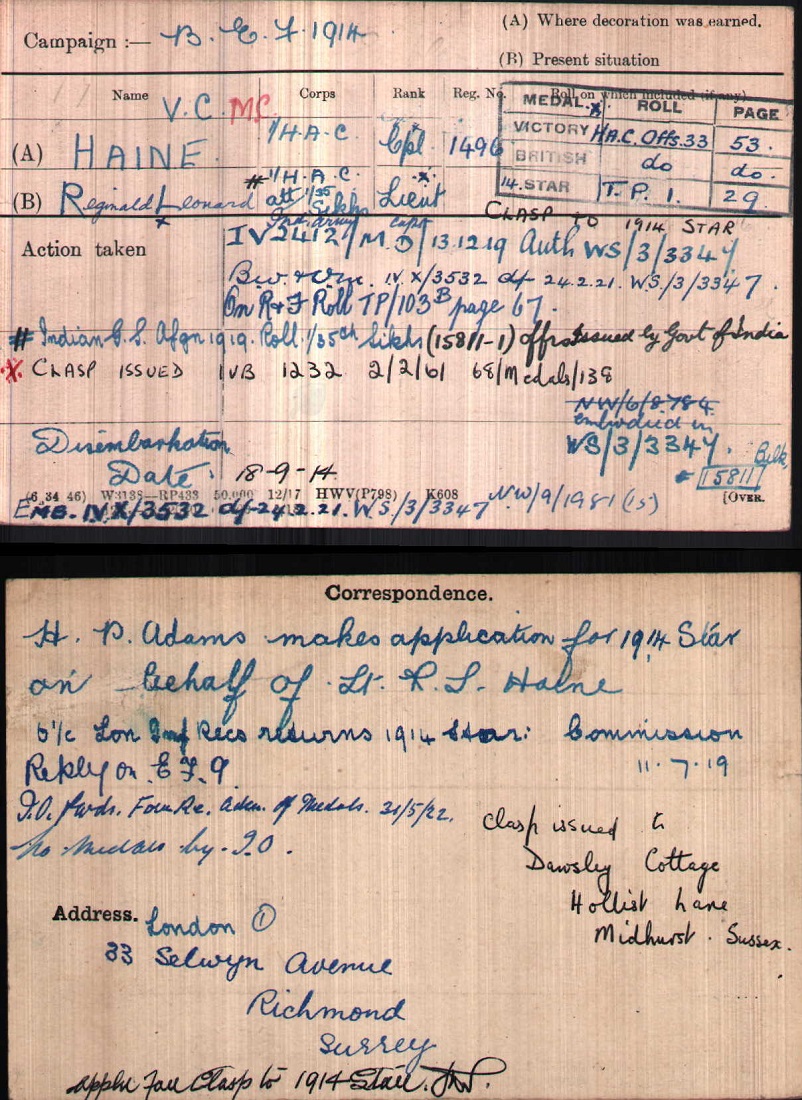 Campaign :— B. E. F. 1914
(A) Where decoration was earned.
(B) Present situation
Name Corps Rank Reg. No. Roll on which included (if any)
V.C. MC
MEDAL ROLL PAGE
VICTORY H.A.C. Offs. 33 53.
BRITISH do do.
14. STAR T. P. 1. 29
(A) HAINE 1/H.A.C. Cpl 1496
(B) Reginald Leonard # 1/H.A.C. Lieut
x att 1/35 Sikhs
Ind. Army Capt
CLASP TO 1914 STAR
Action taken IV 2412/M.D/13.12.19 Auth WS/3/3347
B.W. & Vm. IV X/3532 df 24.2.21. W.S./3/3347.
On R & F Roll TP/103 B page 67.
# Indian G.S. Afgn 1919. Roll 1/35th Sikhs (15811-1) offrs Issued by Govt of India
x. CLASP ISSUED IVB 1232 2/2/61 68/Medals/138
NW/6/8784
embodied in
WS/3/3347.
Bulk
15811
Disembarkation
Date: 18-9-14
(6 34 46) W3138—RP433 50,000 12/17 HWV(P798) K608 [OVER.
EMB. IV X/3532 df-24.2.21. W.S./3/3347 N.W/9/1981 (15)
Correspondence.
H. P. Adams makes application for 1914 Star
on behalf of Lt. R. L. Haine
O i/c Lon Inf Recs returns 1914 Star: Commission
Reply on E F. 9 11.7.19
I.O. fwds. Adm. of Medals. 31/5/22.
No Medals by I.O.
Clasp issued to
Dawsley Cottage
Hollist Lane
Midhurst. Sussex.
Address. London ①
33 Selwyn Avenue
Richmond
Surrey
Clasp to 1914 Star.